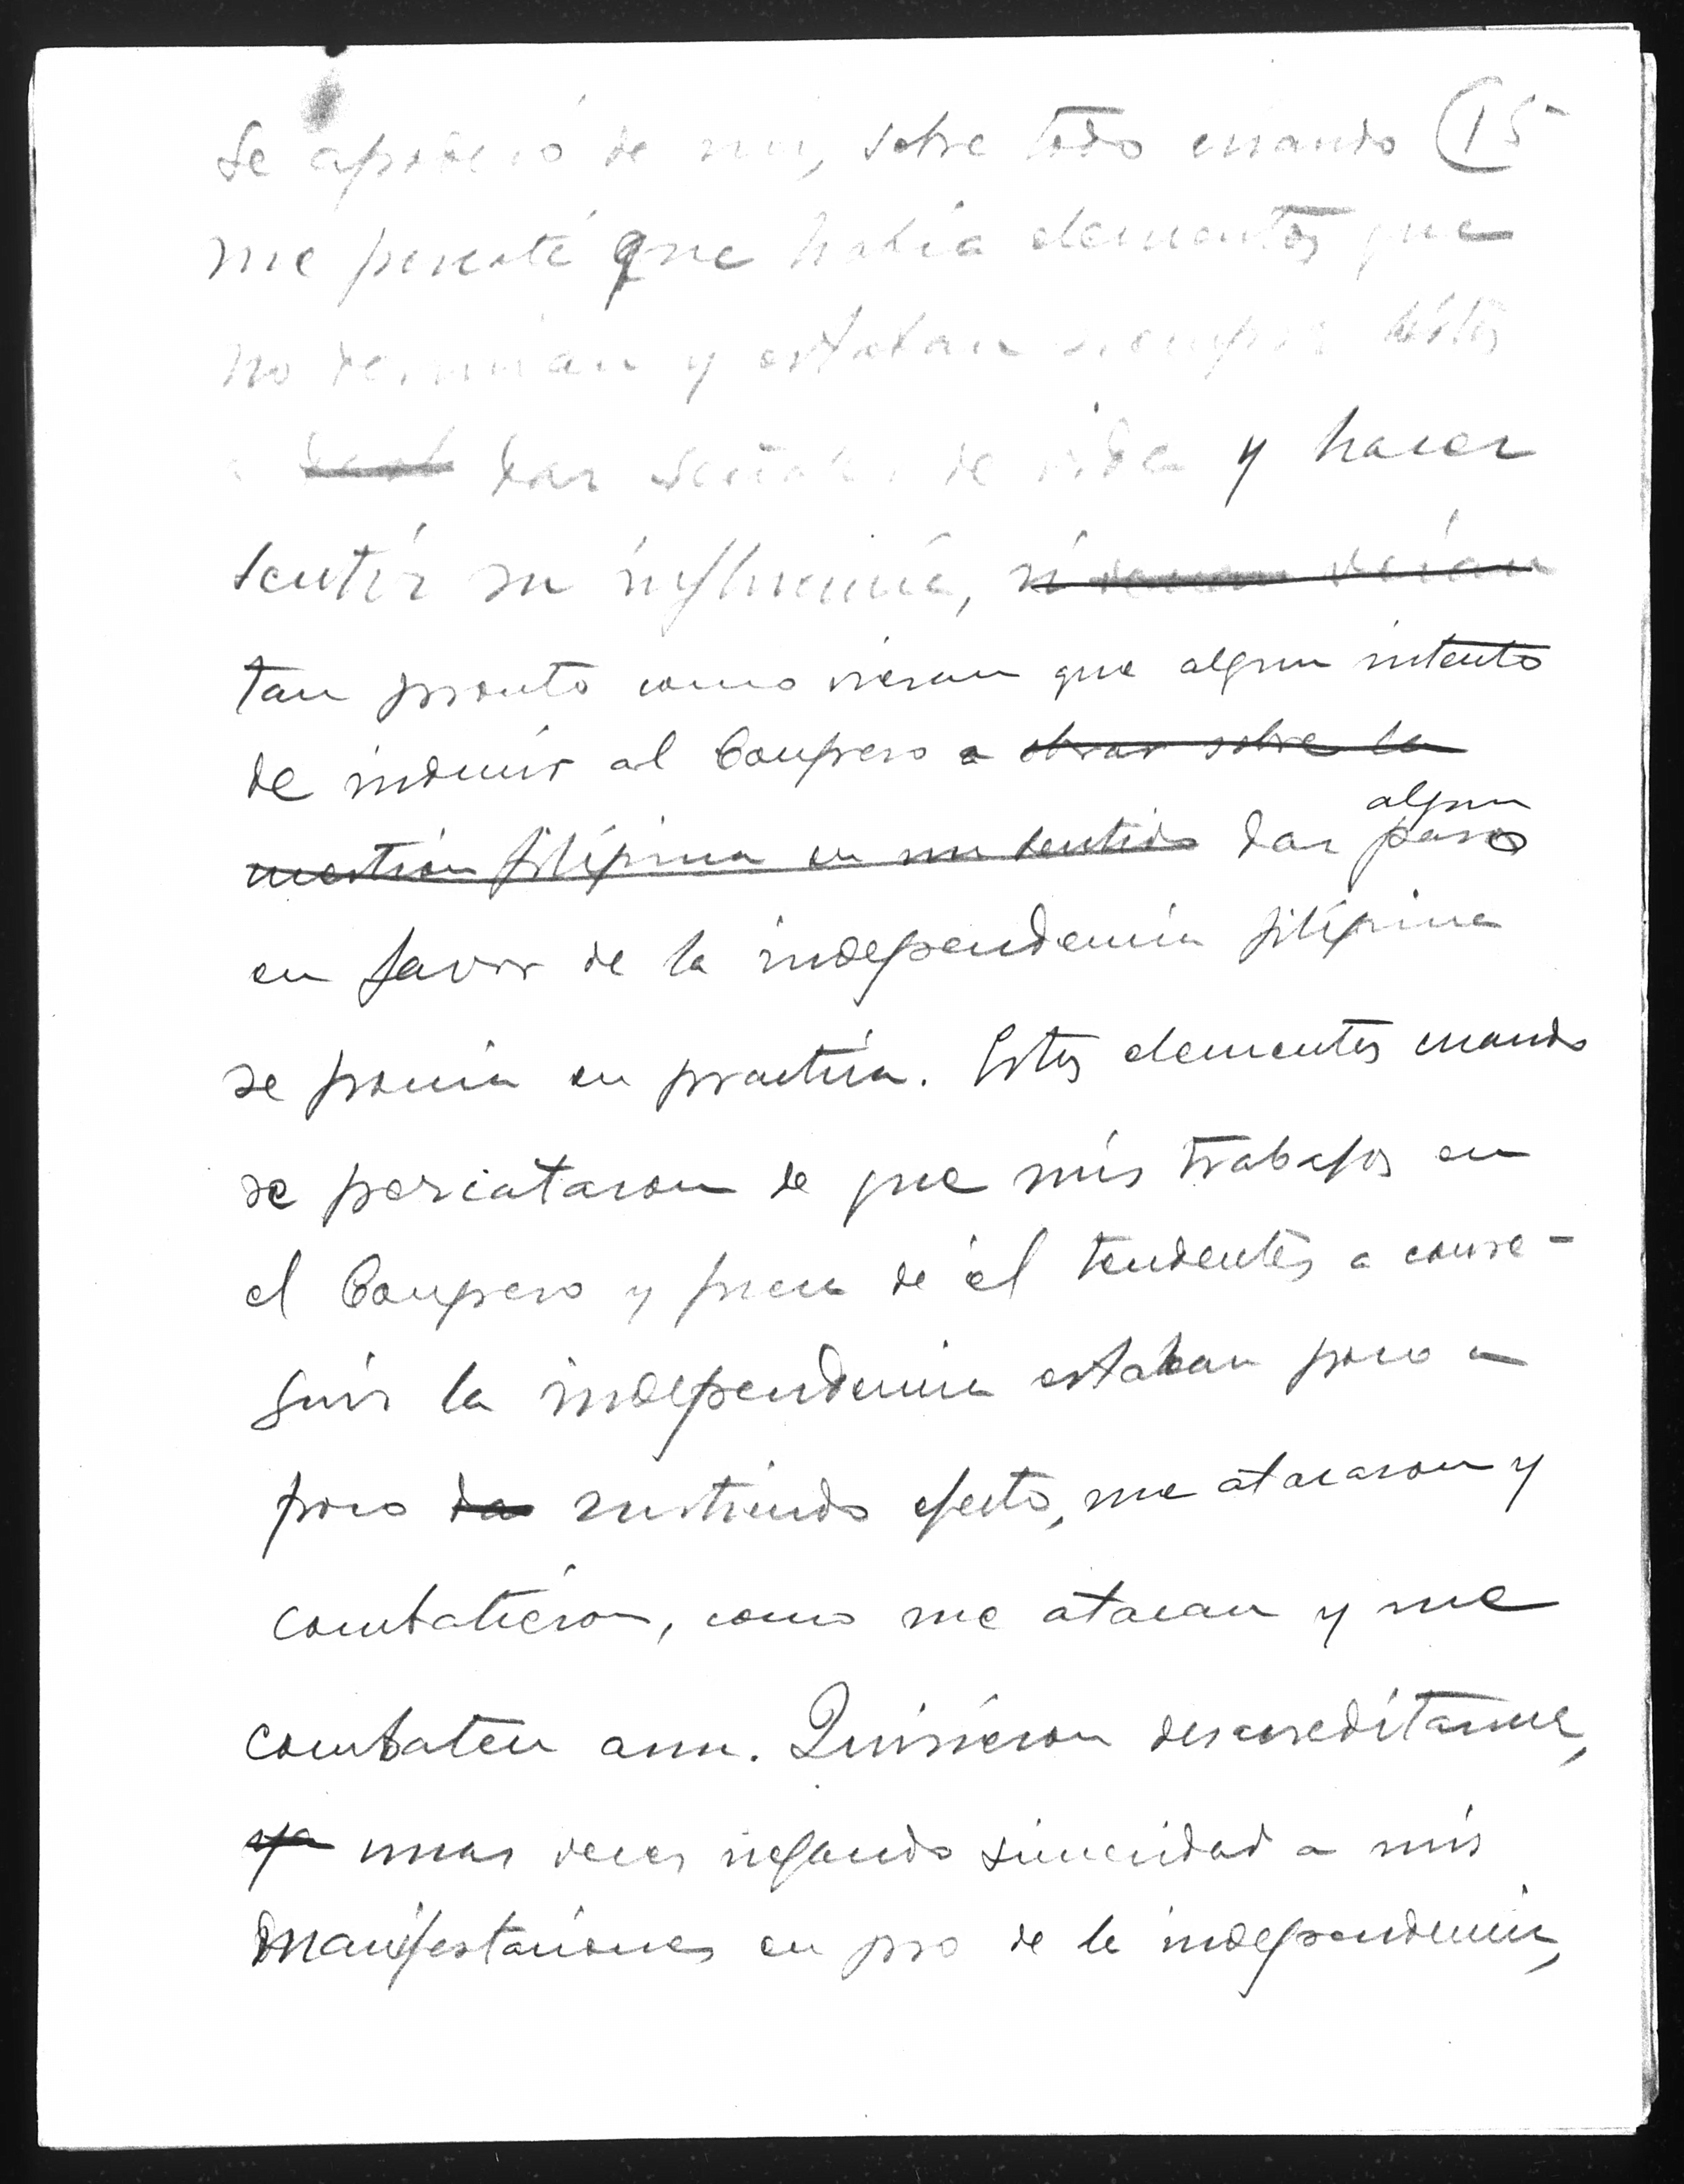 se apoderó de mi, sobre todo cuando (15
me percaté que habia elementos que
no dormian y estaban siempre listos
a dar señales de vida y hacer
sentir su influencia, si veian
tan pronto como vieran que algun intento
de inducir al Congreso a obrar sobre la
algun
cuestión filipina en un sentido dar paso
en favor de la independencia filipina
se ponia en practica. Estos elementos cuando
se percataron de que mis trabajos en
el Congreso y fuera de él tendentes a conse-
guir la independencia estaban poco a
poco da surtiendo efecto, me atacaron y
combatieron, como me atacan y me
combaten aun. Quisieron desacreditarme,
ya unas veces negando sinceridad a mis
manifestaciones en pro de la independencia,